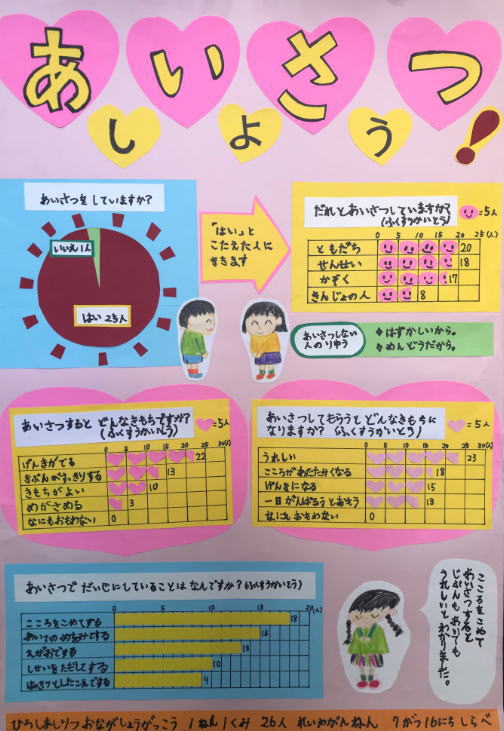 あいさつ
しよう!
あいさつをしていますか?
いいえ1人
はい25人
「はい」と
こたえた人に
ききます
だれとあいさつしていますか?
(ふくすうかいとう)
=5人
0 5 10 15 20 25(人)
ともだち 20
せんせい 18
かぞく 17
きんじょの人 8
あいさつしない
人のりゆう
◆はずかしいから。
◆めんどうだから。
あいさつすると どんなきもちですか?
(ふくすうかいとう)
=5人
0 5 10 15 20 25 30(人)
げんきがでる 22
きぶんがすっきりする 13
きもちがよい 10
めがさめる 3
なにもおもわない 0
あいさつしてもらうと どんなきもちに
なりますか? (ふくすうかいとう)
=5人
0 5 10 15 20 25 30(人)
うれしい 23
こころがあたたかくなる 18
げんきになる 15
一日がんばろうとおもう 13
なにもおもわない 0
あいさつで だいじにしていることは なんですか?(ふくすうかいとう)
0 5 10 15 20(人)
こころをこめてする 18
あいてのめをみてする 15
えがおでする 13
しせいをただしてする 10
はっきりとしたこえでする 9
こころをこめて
あいさつすると
じぶんも あいても
うれしいと わかりました。
ひろしましりつ おながしょうがっこう 1ねん1くみ 26人 れいわがんねん 7がつ16にち しらべ